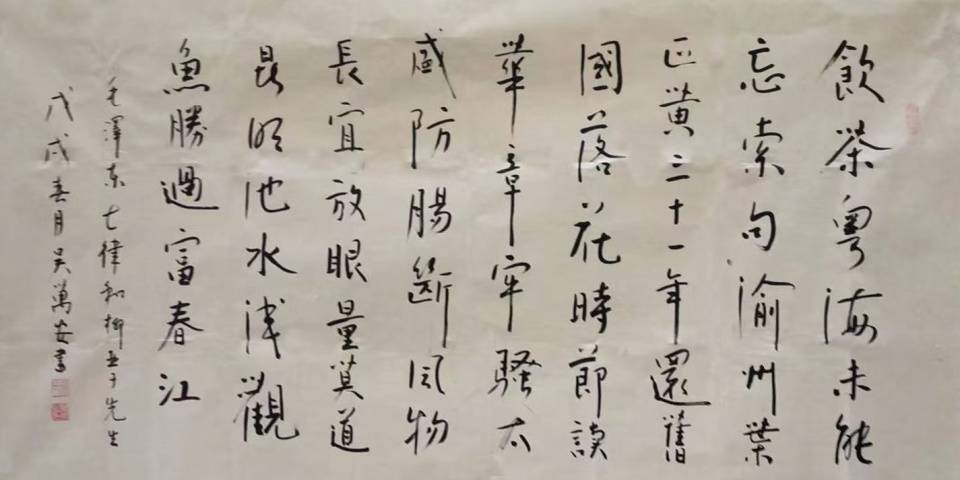 飲茶粵海未能
忘索句渝州葉
正黃三十一年還舊
國落花時節讀
華章牢騷太
盛防腸斷風物
長宜放眼量莫道
昆明池水浅觀
魚勝過富春江
毛澤東七律和柳亞子先生
戊戌春月吴萬安書